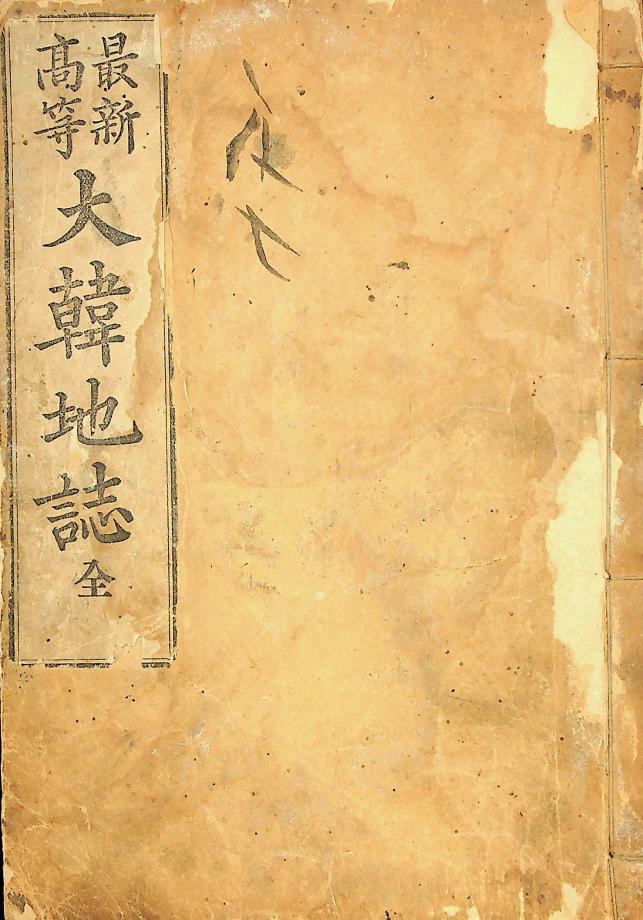 最新
高等
大韓地誌 全